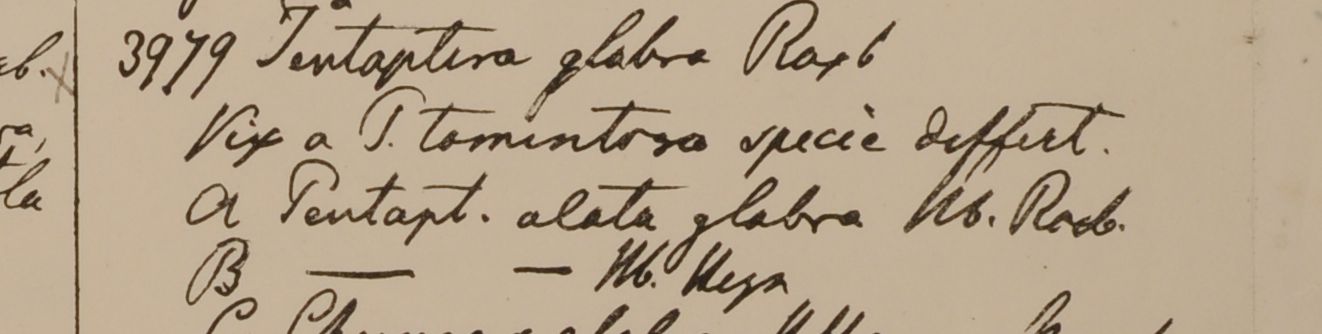 3979 Pentaptera glabra Roxb
Vix a P. tomentosa specie differt.
A Pentapt. alata glabra Hb. Roxb.
B — — Hb. Heyn